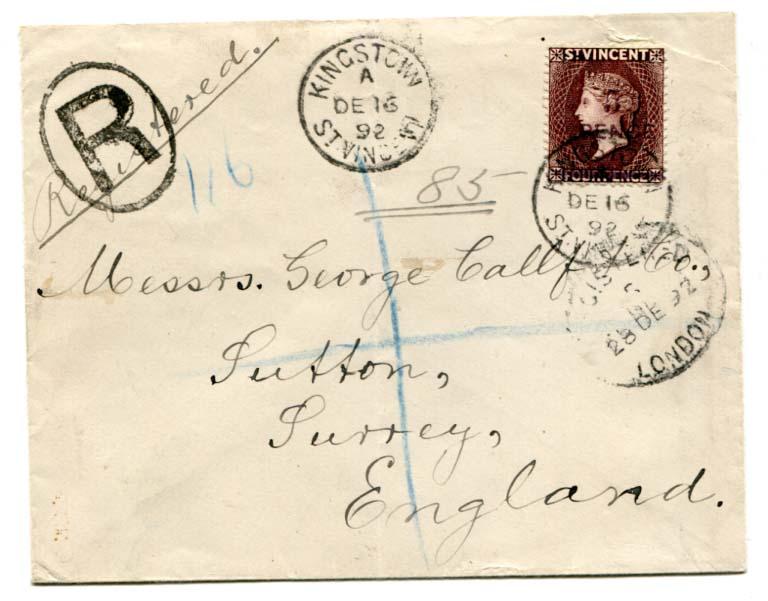 R
Registered.
KINGSTOWN
A
DE 16
92
ST VINCENT
ST VINCENT
5
PENCE
FOUR PENCE
116
85
KINGSTOWN
DE 16
92
ST.VINCENT
28 DE 92
LONDON
Messrs. George Callf & Co.,
Sutton,
Surrey,
England.